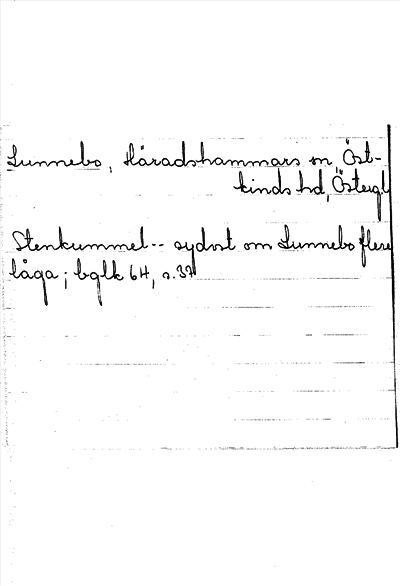 Sunnebo, Häradshammars sn, Öst-
kinds hd, Östergl
Stenkummel -- sydost om Sunnebo flere
låga; bglk 64, s. 37